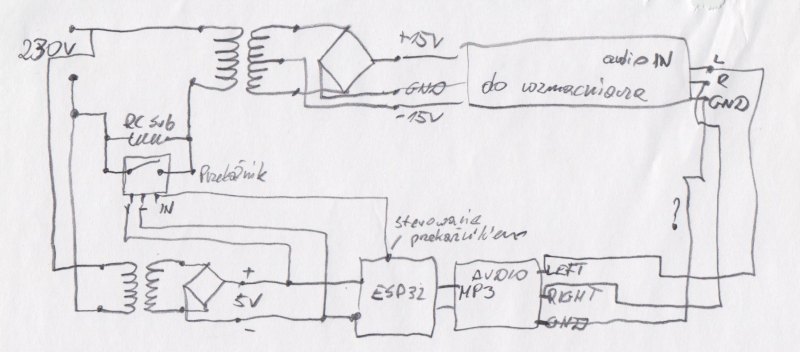 230V
+15V
GND
-15V
audio IN
do wzmacniacza
L
R
GND
Przekaźnik
+ - IN
sterowanie
przekaźnikiem
+
5V
-
ESP32
AUDIO
MP3
LEFT
RIGHT
GND
?